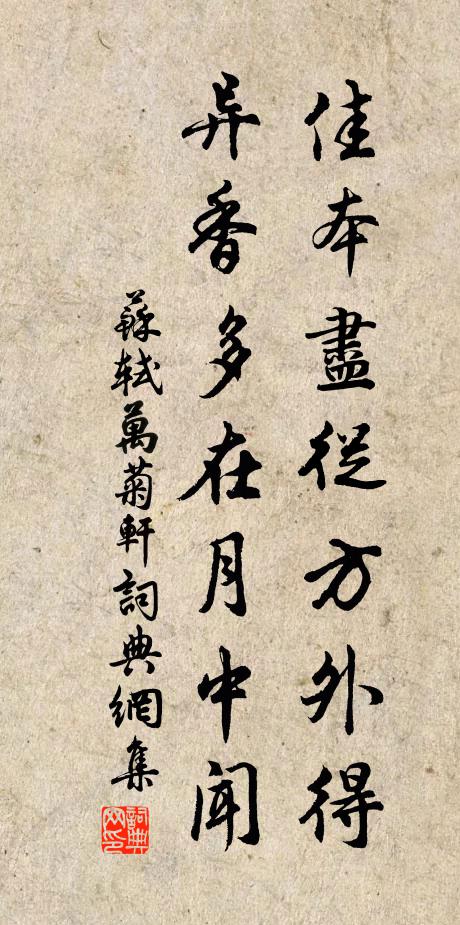 佳本盡從方外得
异香多在月中聞
蘇軾萬菊軒詞典網集
詞典
网印